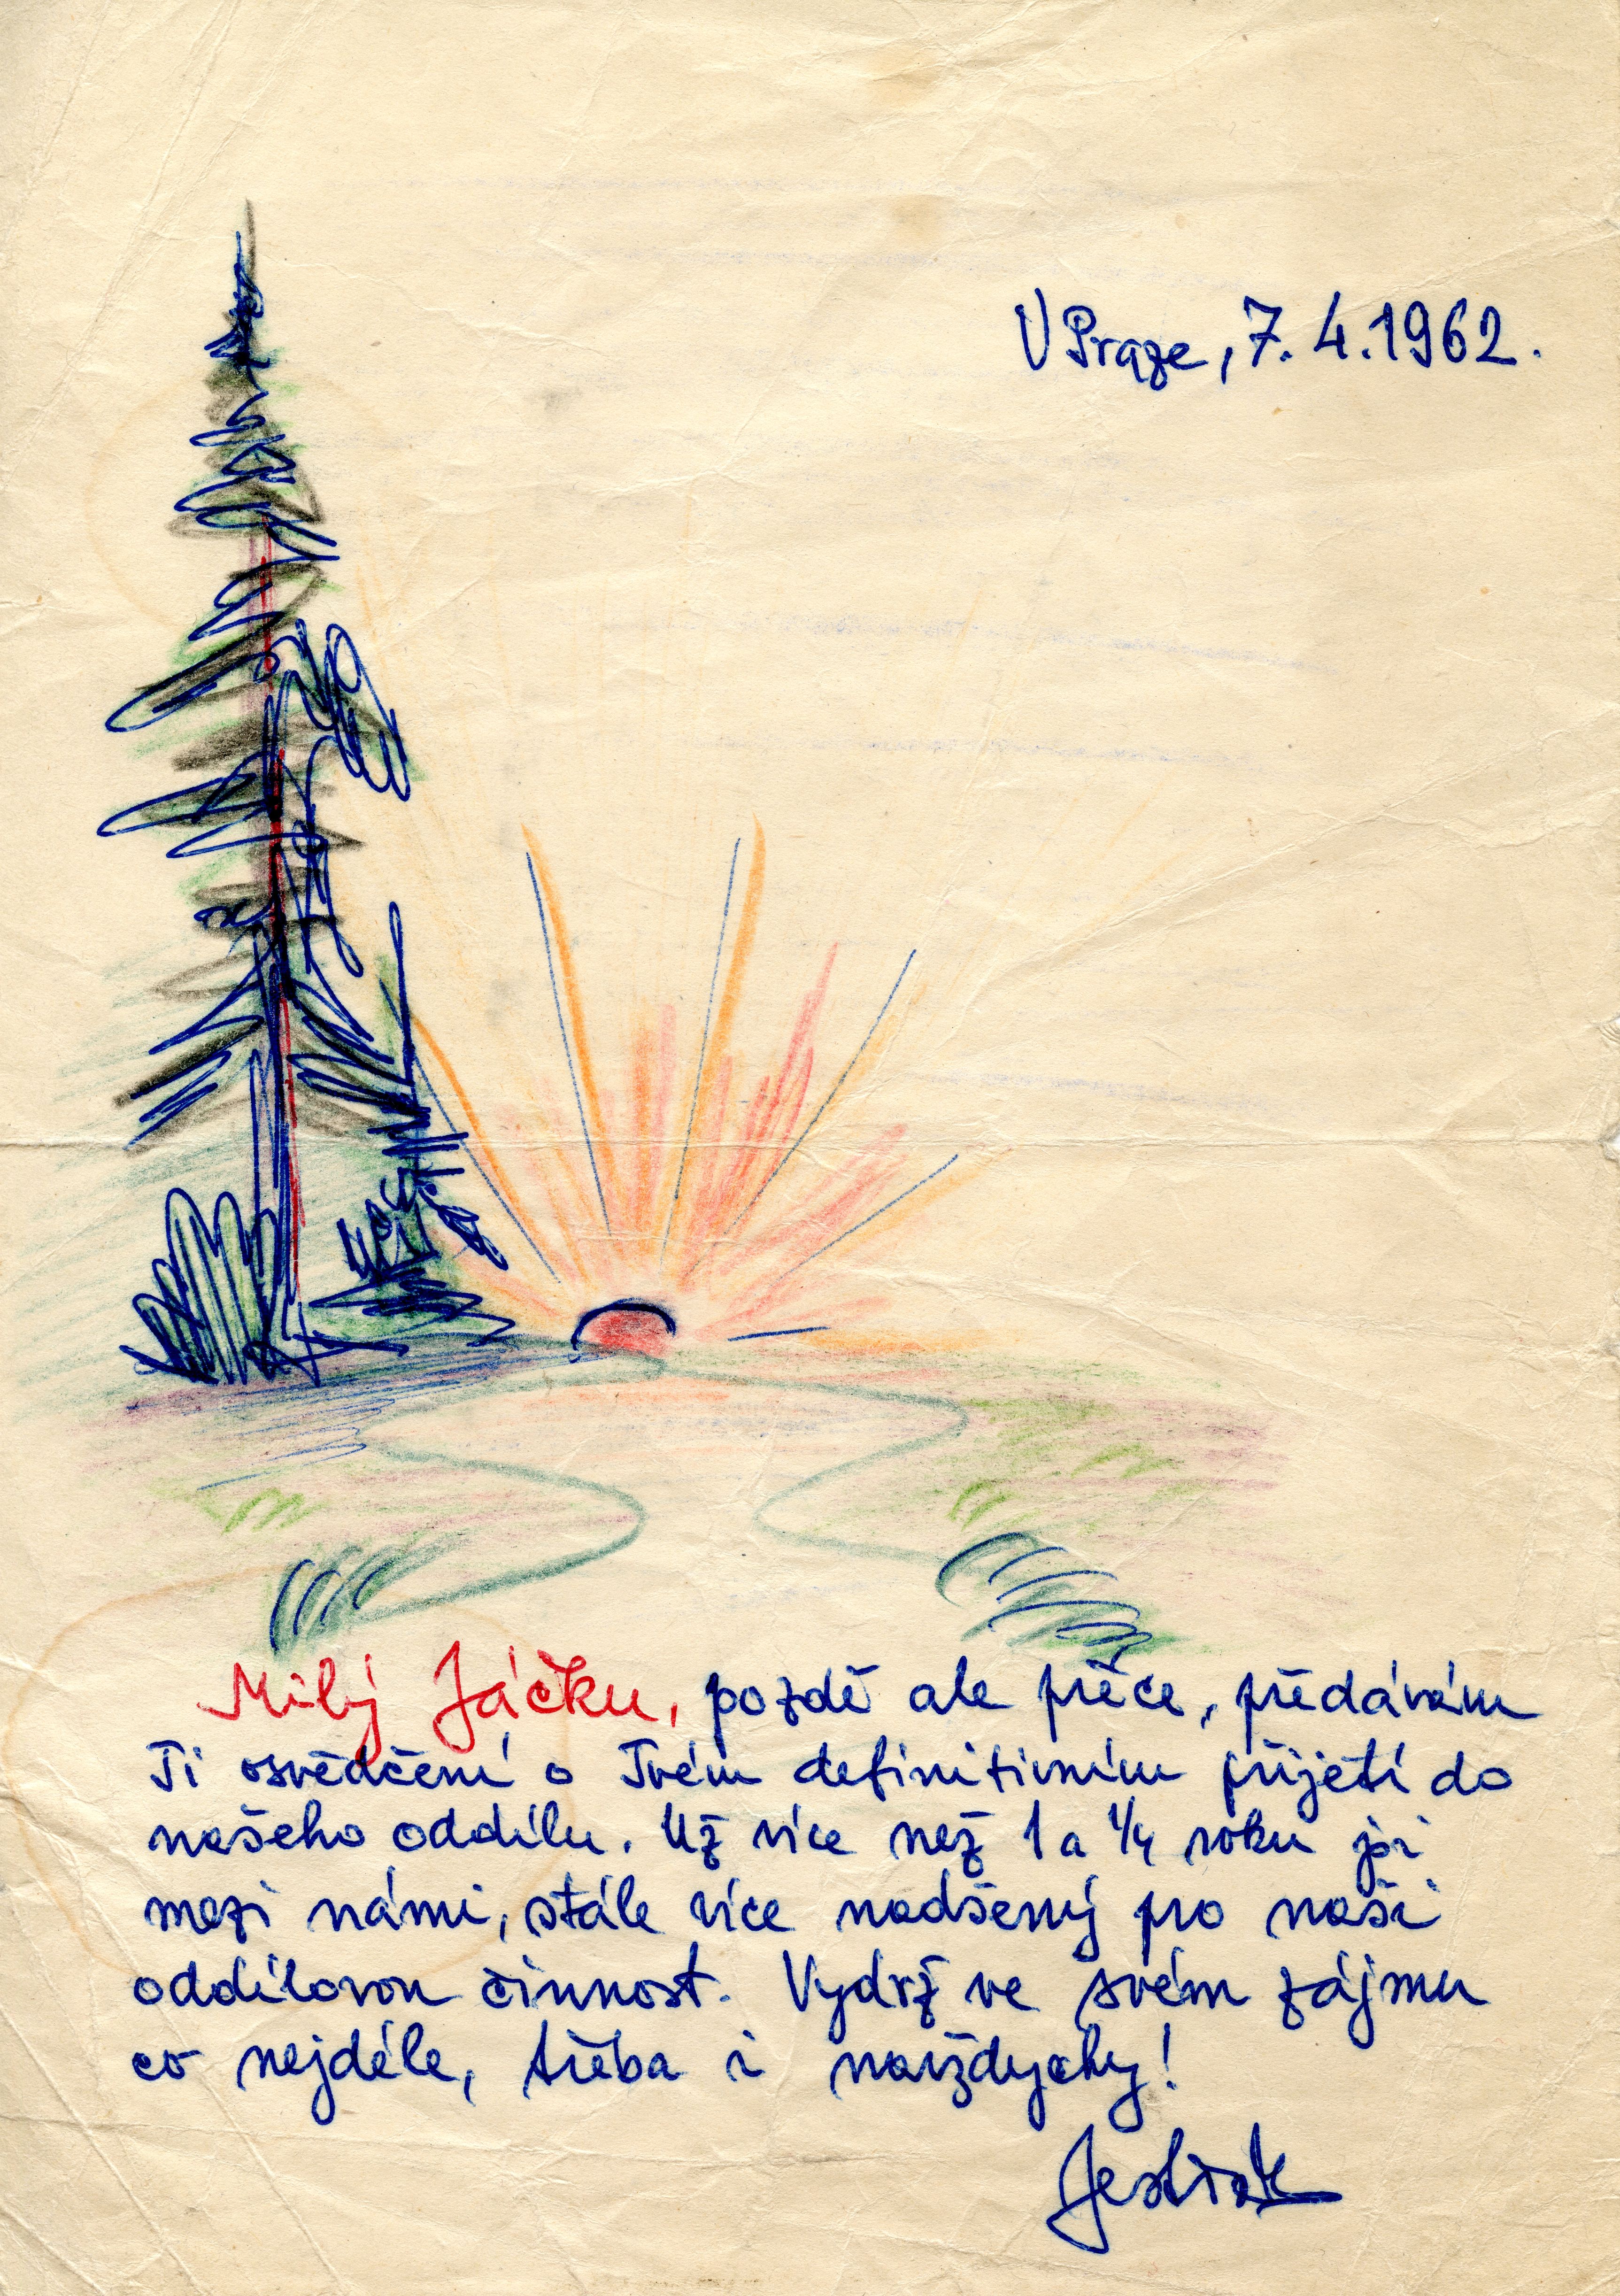 V Praze, 7. 4. 1962.
Milý Jáčku, pozdě ale přece, předávám
Ti osvědčení o Tvém definitivním přijetí do
našeho oddílu. Už více než 1 a 1/4 roku jsi
mezi námi, stále více nadšený pro naši
oddílovou činnost. Vydrž ve svém zájmu
co nejdéle, třeba i navždycky!
Jestřáb